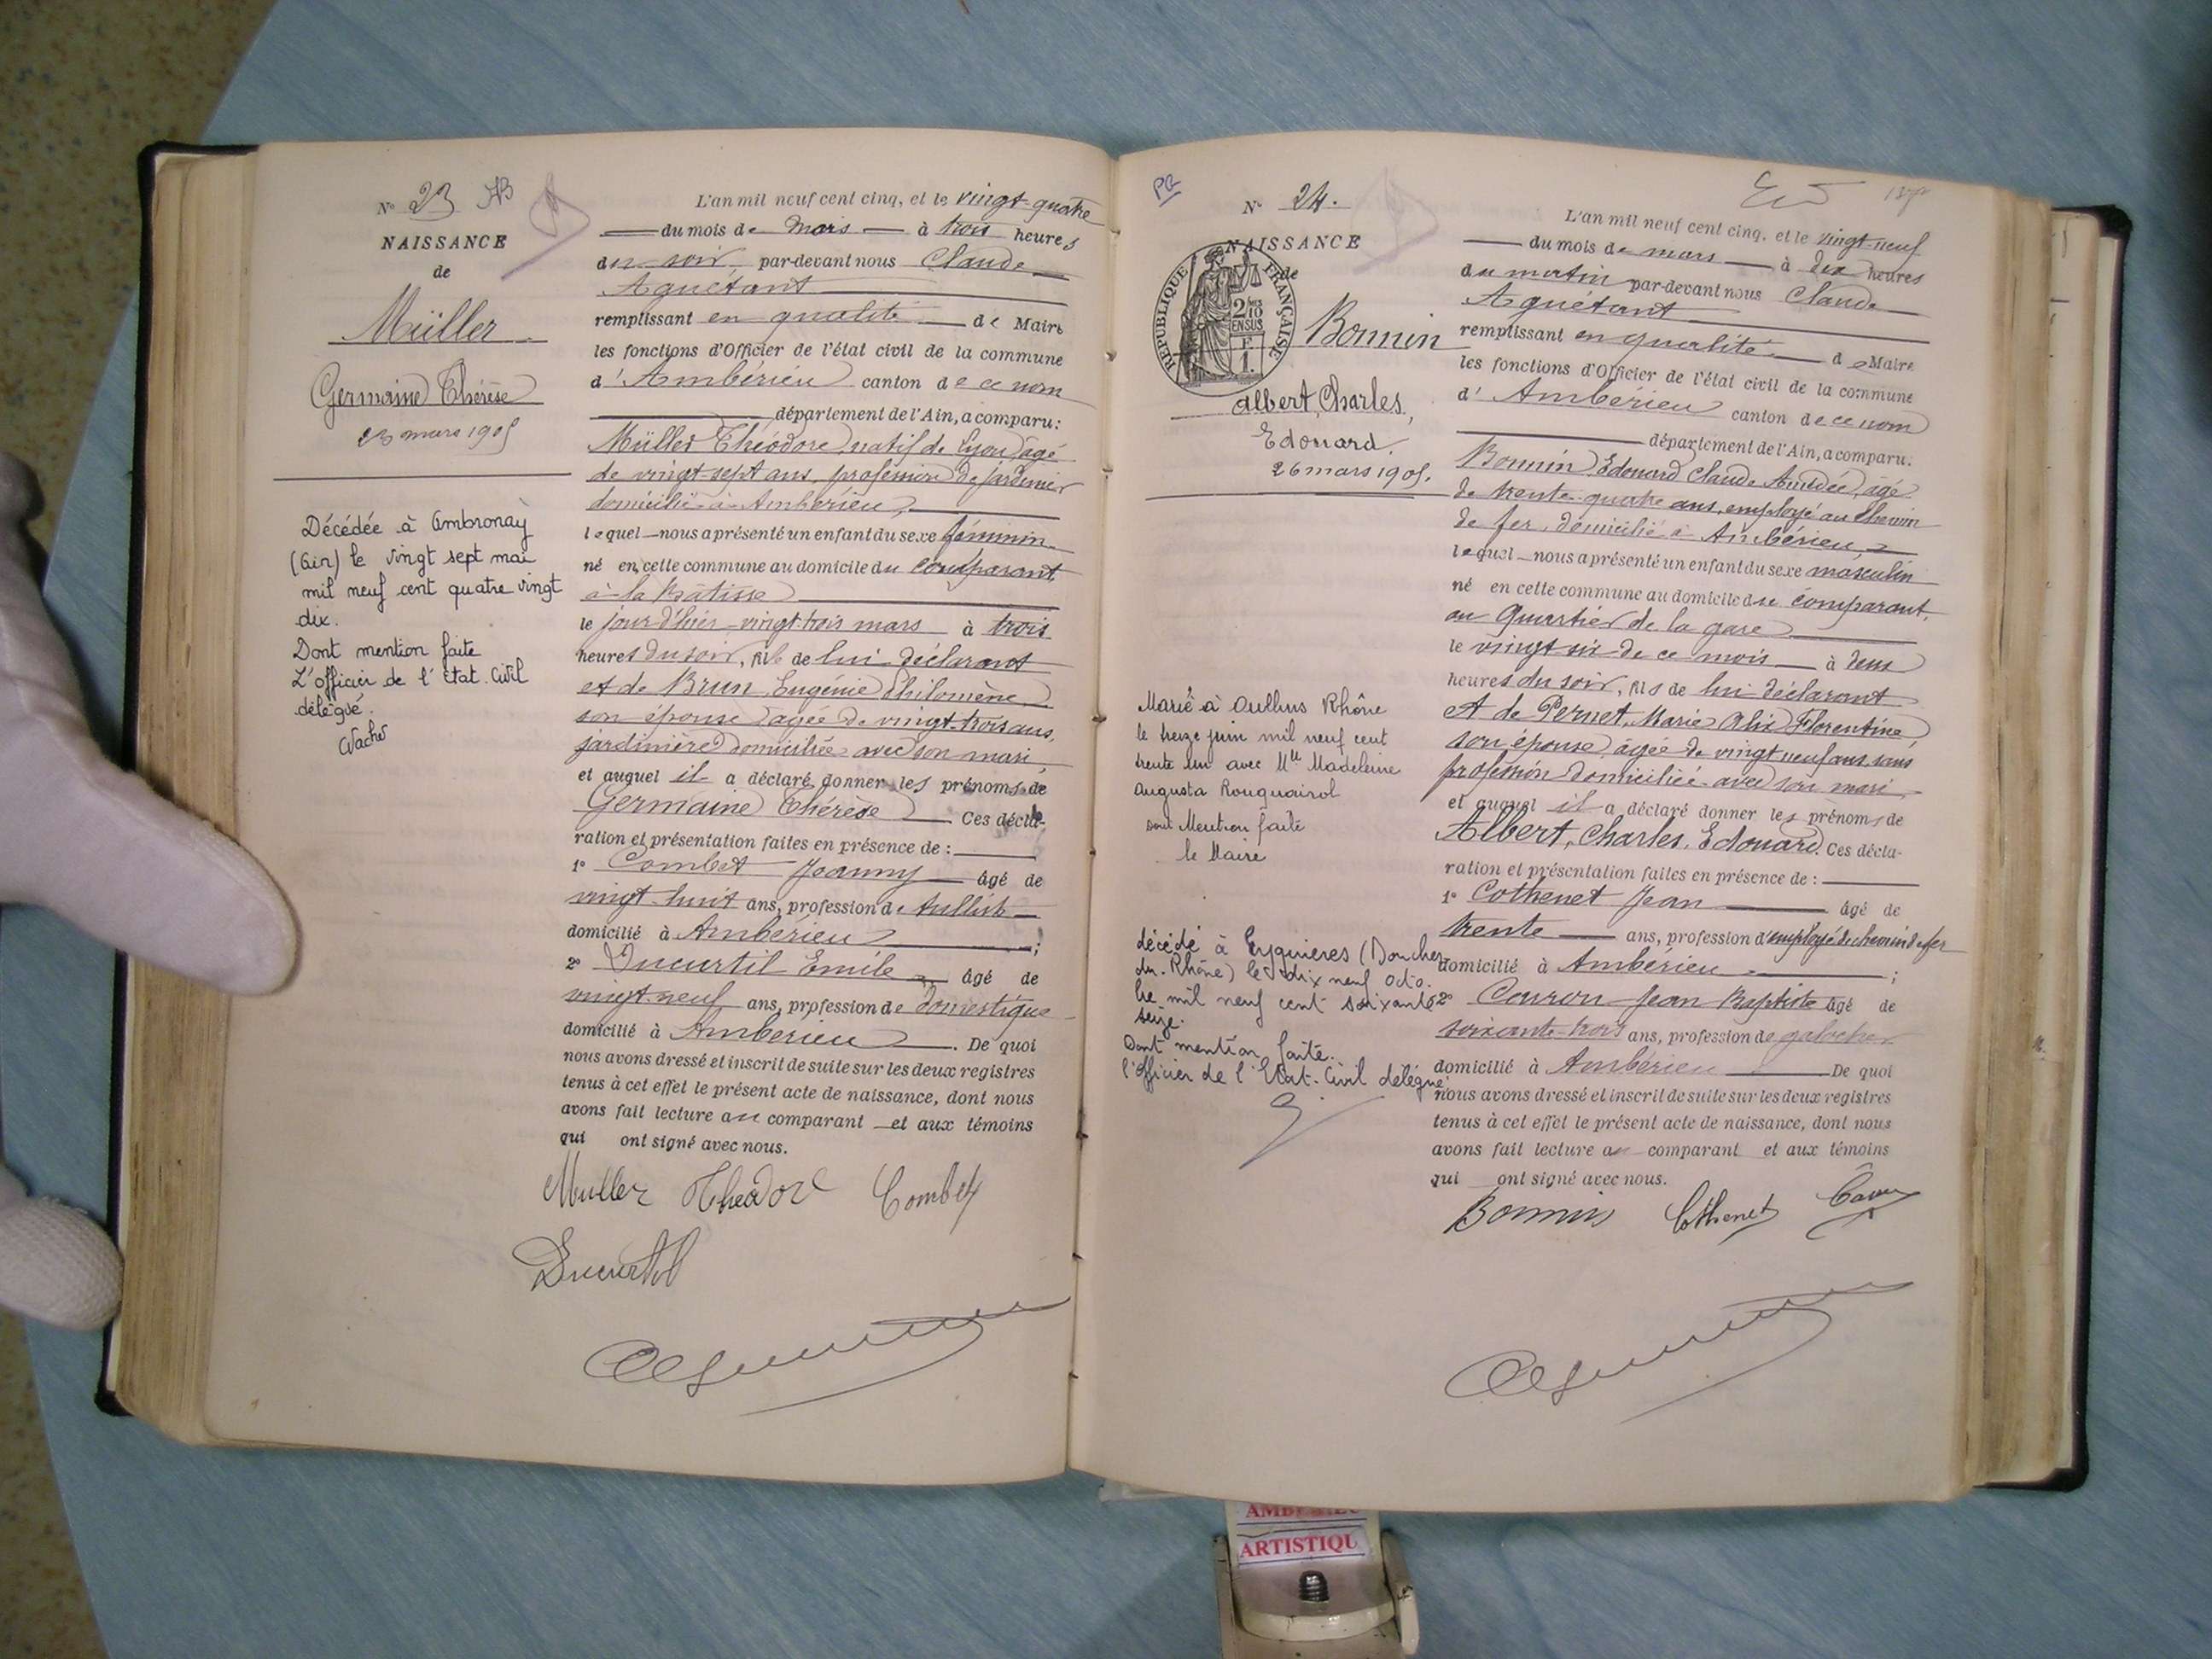 N° 23 AB
NAISSANCE
de
Müller
Germaine Thérèse
23 mars 1905
Décédée à Ambronay
(Ain) le vingt sept mai
mil neuf cent quatre vingt
dix.
Dont mention faite
L'officier de l'état-civil
délégué.
L'an mil neuf cent cinq, et le vingt-quatre
du mois de mars à trois heures
du soir par-devant nous Claude
Aguétant
remplissant en qualité de Maire
les fonctions d'Officier de l'état civil de la commune
d'Ambérieu canton de ce nom
département de l'Ain, a comparu:
Müller Théodore, natif de Lyon, âgé
de vingt-sept ans, profession de jardinier
domicilié à Ambérieu,
lequel nous a présenté un enfant du sexe féminin
né en cette commune au domicile du comparant
à la Bâtisse
le jour d'hier vingt-trois mars à trois
heures du soir, fille de lui déclarant
et de Brun Eugénie Philomène,
son épouse, âgée de vingt-trois ans,
jardinière domiciliée avec son mari,
et auquel il a déclaré donner les prénoms de
Germaine Thérèse Ces décla-
ration et présentation faites en présence de :
1° Combet Joanny âgé de
vingt-huit ans, profession de
domicilié à Ambérieu ;
2° Ducurtil Emile âgé de
vingt-neuf ans, profession de domestique
domicilié à Ambérieu . De quoi
nous avons dressé et inscrit de suite sur les deux registres
tenus à cet effet le présent acte de naissance, dont nous
avons fait lecture au comparant et aux témoins
qui ont signé avec nous.
Muller Théodore Combet
Ducurtil
PR
N° 24.
NAISSANCE
de
RÉPUBLIQUE FRANÇAISE
2/10
EN SUS
F.
1.
Bonnin
Albert, Charles,
Edouard.
26 mars 1905.
Marié à Oullins Rhône
le treize juin mil neuf cent
trente un avec Mlle Madeleine
Augusta Rouquairol
dont Mention faite
le Maire
décédé à Eyguieres (Bouches
du-Rhône) le dix neuf octo-
bre mil neuf cent soixante
seize.
Dont mention faite.
l'officier de l'Etat-Civil délégué
L'an mil neuf cent cinq, et le vingt-neuf
du mois de mars à dix heures
du matin par-devant nous Claude
Aguétant
remplissant en qualité de Maire
les fonctions d'Officier de l'état civil de la commune
d'Ambérieu canton de ce nom
département de l'Ain, a comparu:
Bonnin Edouard Claude Amédée, âgé
de trente-quatre ans, employé au chemin
de fer, domicilié à Ambérieu,
lequel nous a présenté un enfant du sexe masculin
né en cette commune au domicile du comparant,
au Quartier de la gare
le vingt-six de ce mois à deux
heures du soir, fils de lui déclarant
et de Pernet, Marie Alix Florentine,
son épouse âgée de vingt neuf ans, sans
profession domiciliée avec son mari
et auquel il a déclaré donner les prénoms de
Albert, Charles, Edouard. Ces décla-
ration et présentation faites en présence de :
1° Cothenet Jean âgé de
trente ans, profession d'employé de chemin de fer
domicilié à Ambérieu ;
2° Couron Jean Baptiste âgé de
soixante-trois ans, profession de galocher
domicilié à Ambérieu De quoi
nous avons dressé et inscrit de suite sur les deux registres
tenus à cet effet le présent acte de naissance, dont nous
avons fait lecture au comparant et aux témoins
qui ont signé avec nous.
Bonnin Cothenet
ARTISTIQU